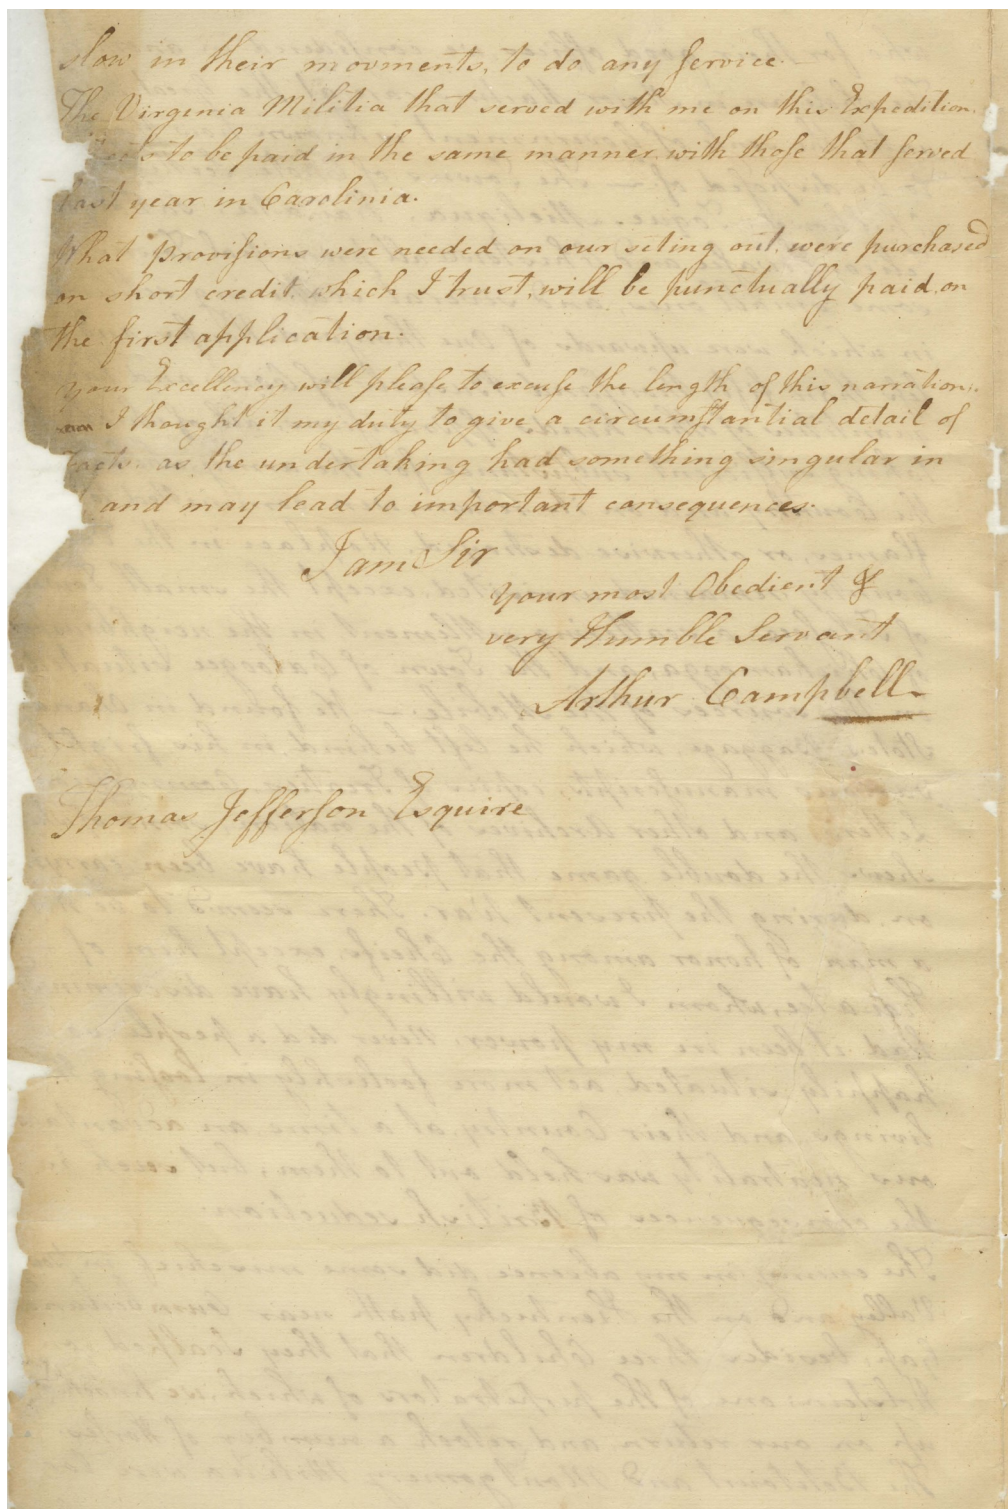 slow in their movments, to do any service.
The Virginia Militia that served with me on this Expedition,
to be paid in the same manner with those that served
last year in Carolinia.
What provisions were needed on our seting out were purchased
on short credit which I trust, will be punctually paid on
the first application.
Your Excellency will please to excuse the length of this narration,
I thought it my duty to give a circumstantial detail of
facts as the undertaking had something singular in
and may lead to important consequences.
I am Sir
your most Obedient &
very Humble Servant
Arthur Campbell
Thomas Jefferson Esquire